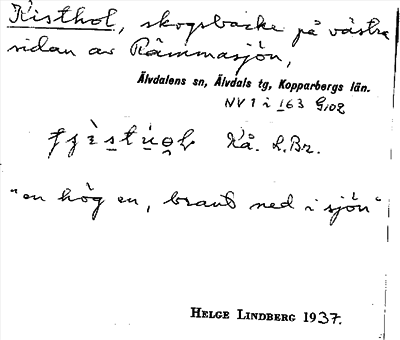 Kisthol, skogsbacke på västra
sidan av Rämmasjön,
Älvdalens sn, Älvdals tg, Kopparbergs län.
NV 1 i 163 G102
Kå. L.Br.
"en hög en, brant ned i sjön"
HELGE LINDBERG 1937.